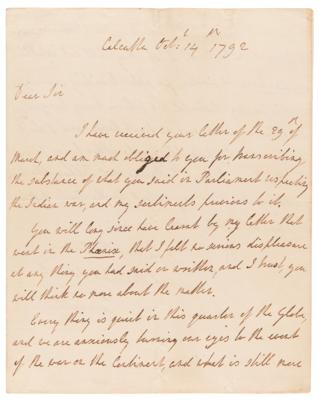 Calcutta Octr. 14th 1792
Dear Sir
I have received your letter of the 29th of
March, and am much obliged to you for transcribing
the substance of what you said in Parliament respecting
the Indian war, and my sentiments previous to it.
You will long since have learnt by my letter that
went in the Phœnix, that I felt no serious displeasure
at any thing you had said or written, and I trust you
will think no more about the matter.
Every thing is quiet in this quarter of the Globe,
and we are anxiously turning our eyes to the event
of the war on the Continent, and what is still more